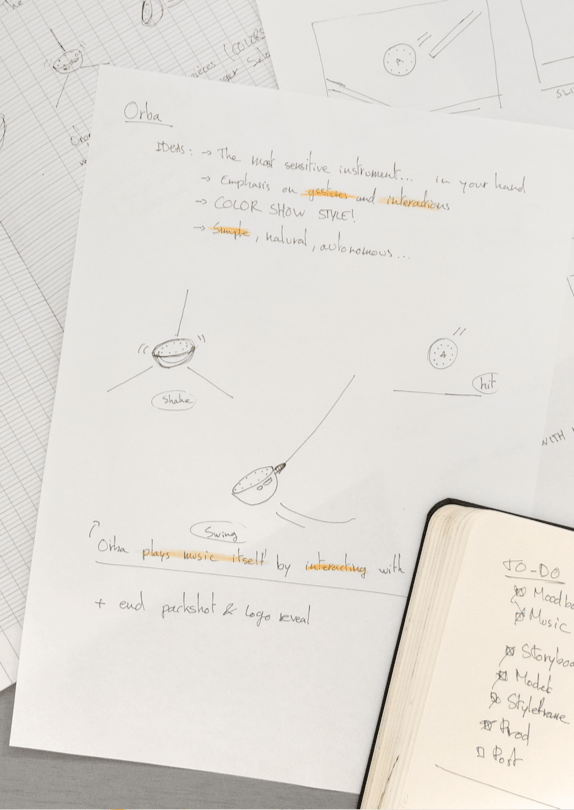 The
(COLORS
Orba
IDEAS: → The most sensitive instrument... in your hand
→ Emphasis on gestures and interactions
→ COLOR SHOW STYLE!
→ Simple, natural, autonomous...
shake
A
hit
Swing
Orba plays music itself by interacting with
+ end packshot & logo reveal
A
WITH
TO-DO
Moodbo
Music
Storyboa
Model
Styleframe
Prod
Post